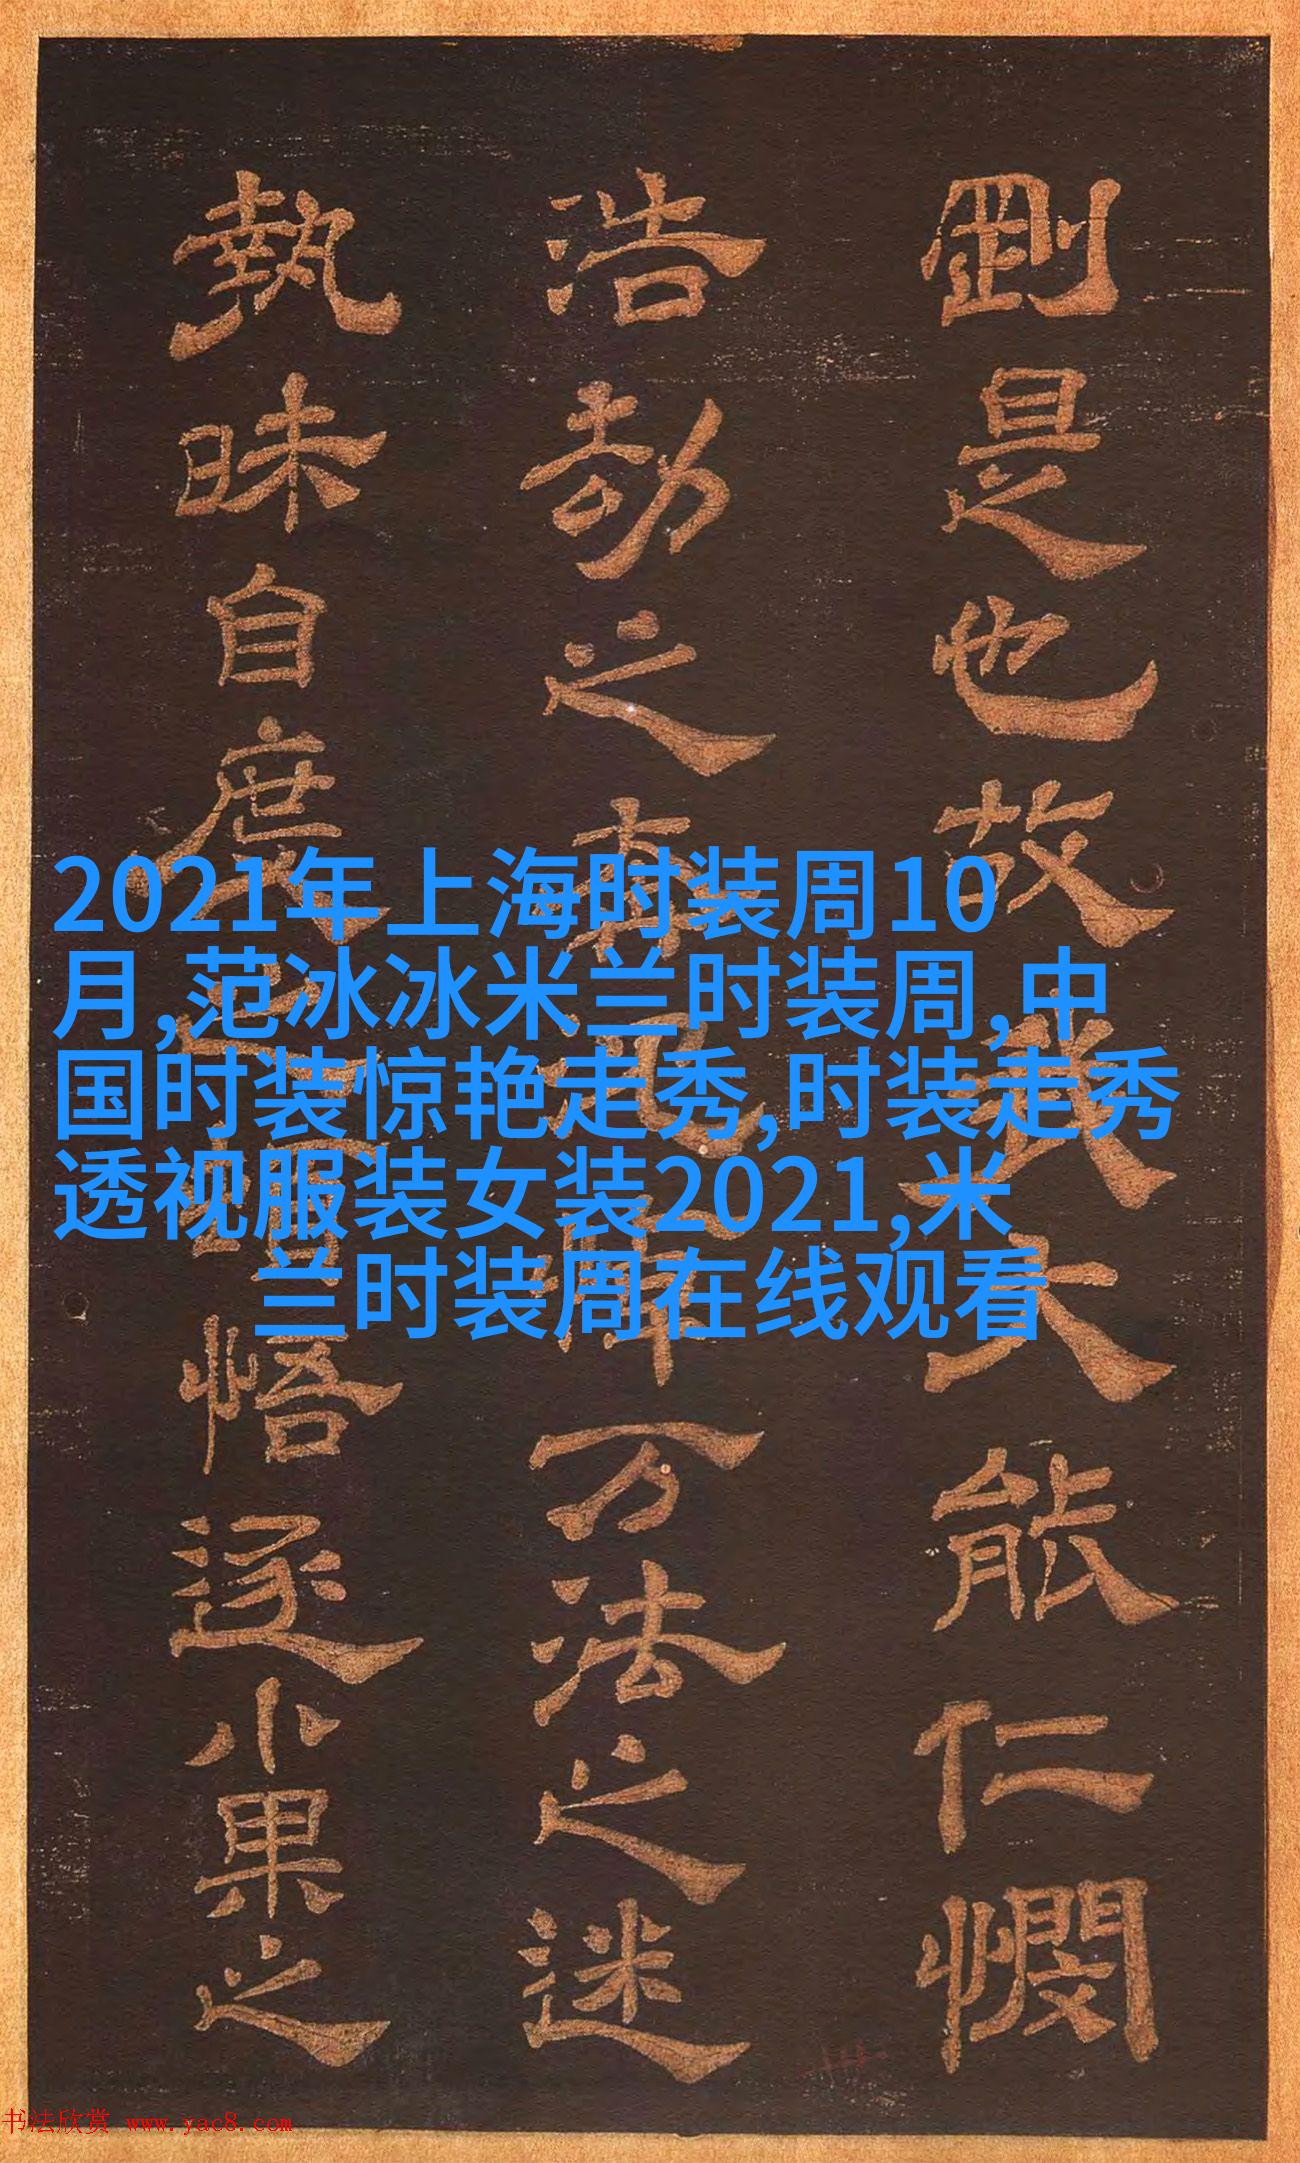 剛是也故我大能仁憫
浩劫之風万法之迷
執昧自度悟逐小果之
2021年上海时装周10
月,范冰冰米兰时装周,中
国时装惊艳走秀,时装走秀
透视服装女装2021,米
兰时装周在线观看
书法欣赏 www.yac8.com